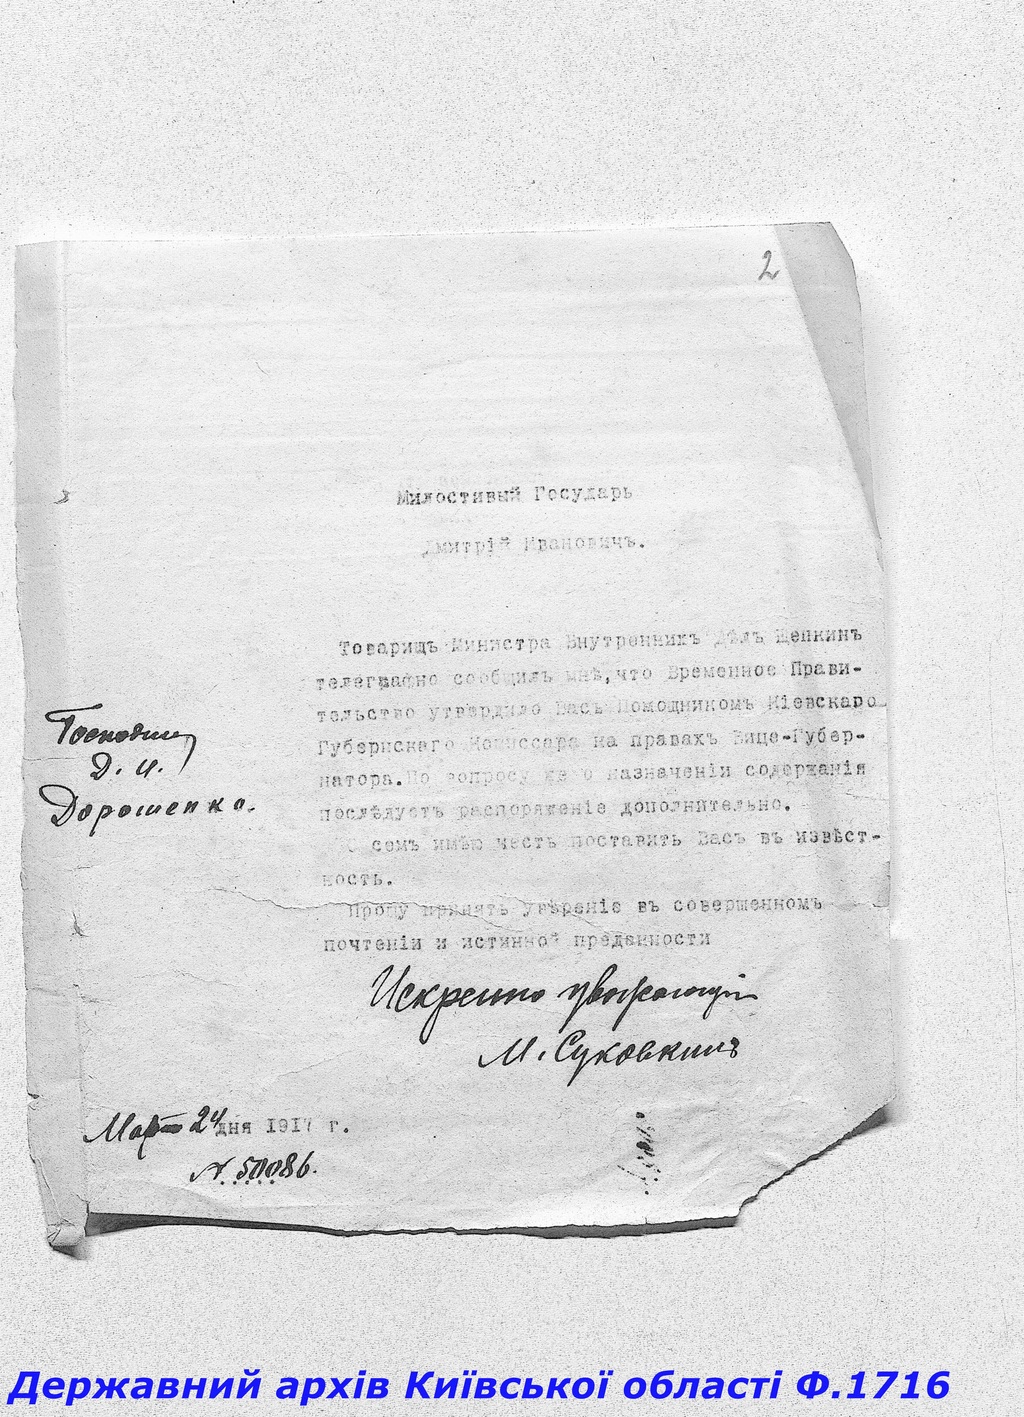 2
Милостивый Государь
Дмитрій Ивановичъ.
Товарищъ Министра Внутреннихъ Дѣлъ Щепкинъ
телеграфно сообщилъ мнѣ, что Временное Прави-
тельство утвердило Васъ Помощникомъ Кіевскаго
Губернскаго Комиссара на правахъ Вице-Губер-
натора. По вопросу же о назначеніи содержанія
послѣдуетъ распоряженіе дополнительно.
О семъ имѣю честь поставить Васъ въ извѣст-
ность.
Прошу принять увѣреніе въ совершенномъ
почтеніи и истинной преданности
Господину
Д. И.
Дорошенко.
Искренно уважающій
М. Суковкинъ
Март 24 дня 1917 г.
№ 50086.
Державний архів Київської області Ф.1716